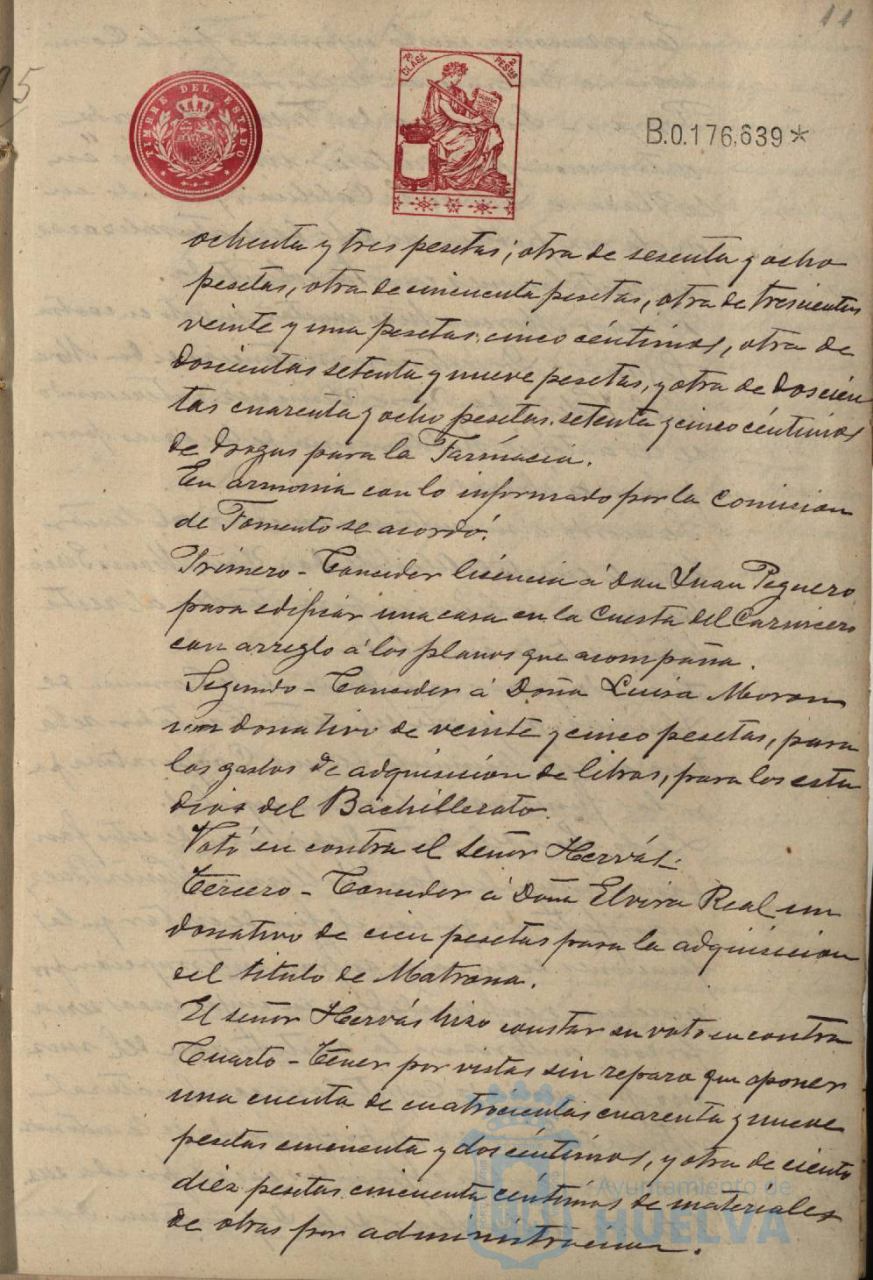 11
95
TIMBRE DEL ESTADO
7ª CLASE 2 PESETAS
B.0.176,639*
ochenta y tres pesetas; otra de sesenta y ocho
pesetas, otra de cincuenta pesetas, otra de trescientas
veinte y una pesetas cinco céntimos, otra de
doscientas setenta y nueve pesetas, y otra de doscien
tas cuarenta y ocho pesetas setenta y cinco céntimos
de drogas para la Farmacia.
En armonia con lo informado por la Comision
de Fomento se acordó.
Primero - Conceder licencia á Don Juan Peguero
para edificar una casa en la Cuesta del Carnicero
con arreglo á los planos que acompaña.
Segundo - Conceder á Doña Luisa Moron
un donativo de veinte y cinco pesetas, para
los gastos de adquisicion de libros, para los estu
dios del Bachillerato.
Votó en contra el señor Hervás.
Tercero - Conceder á Doña Elvira Real un
donativo de cien pesetas para la adquisicion
del titulo de Matrona.
El señor Hervás hizo constar su voto en contra
Cuarto - Tener por vistas sin reparo que oponer
una cuenta de cuatrocientas cuarenta y nueve
pesetas cincuenta y dos céntimos, y otra de ciento
diez pesetas cincuenta céntimos de materiales
de obras por administracion.
Ayuntamiento de
HUELVA